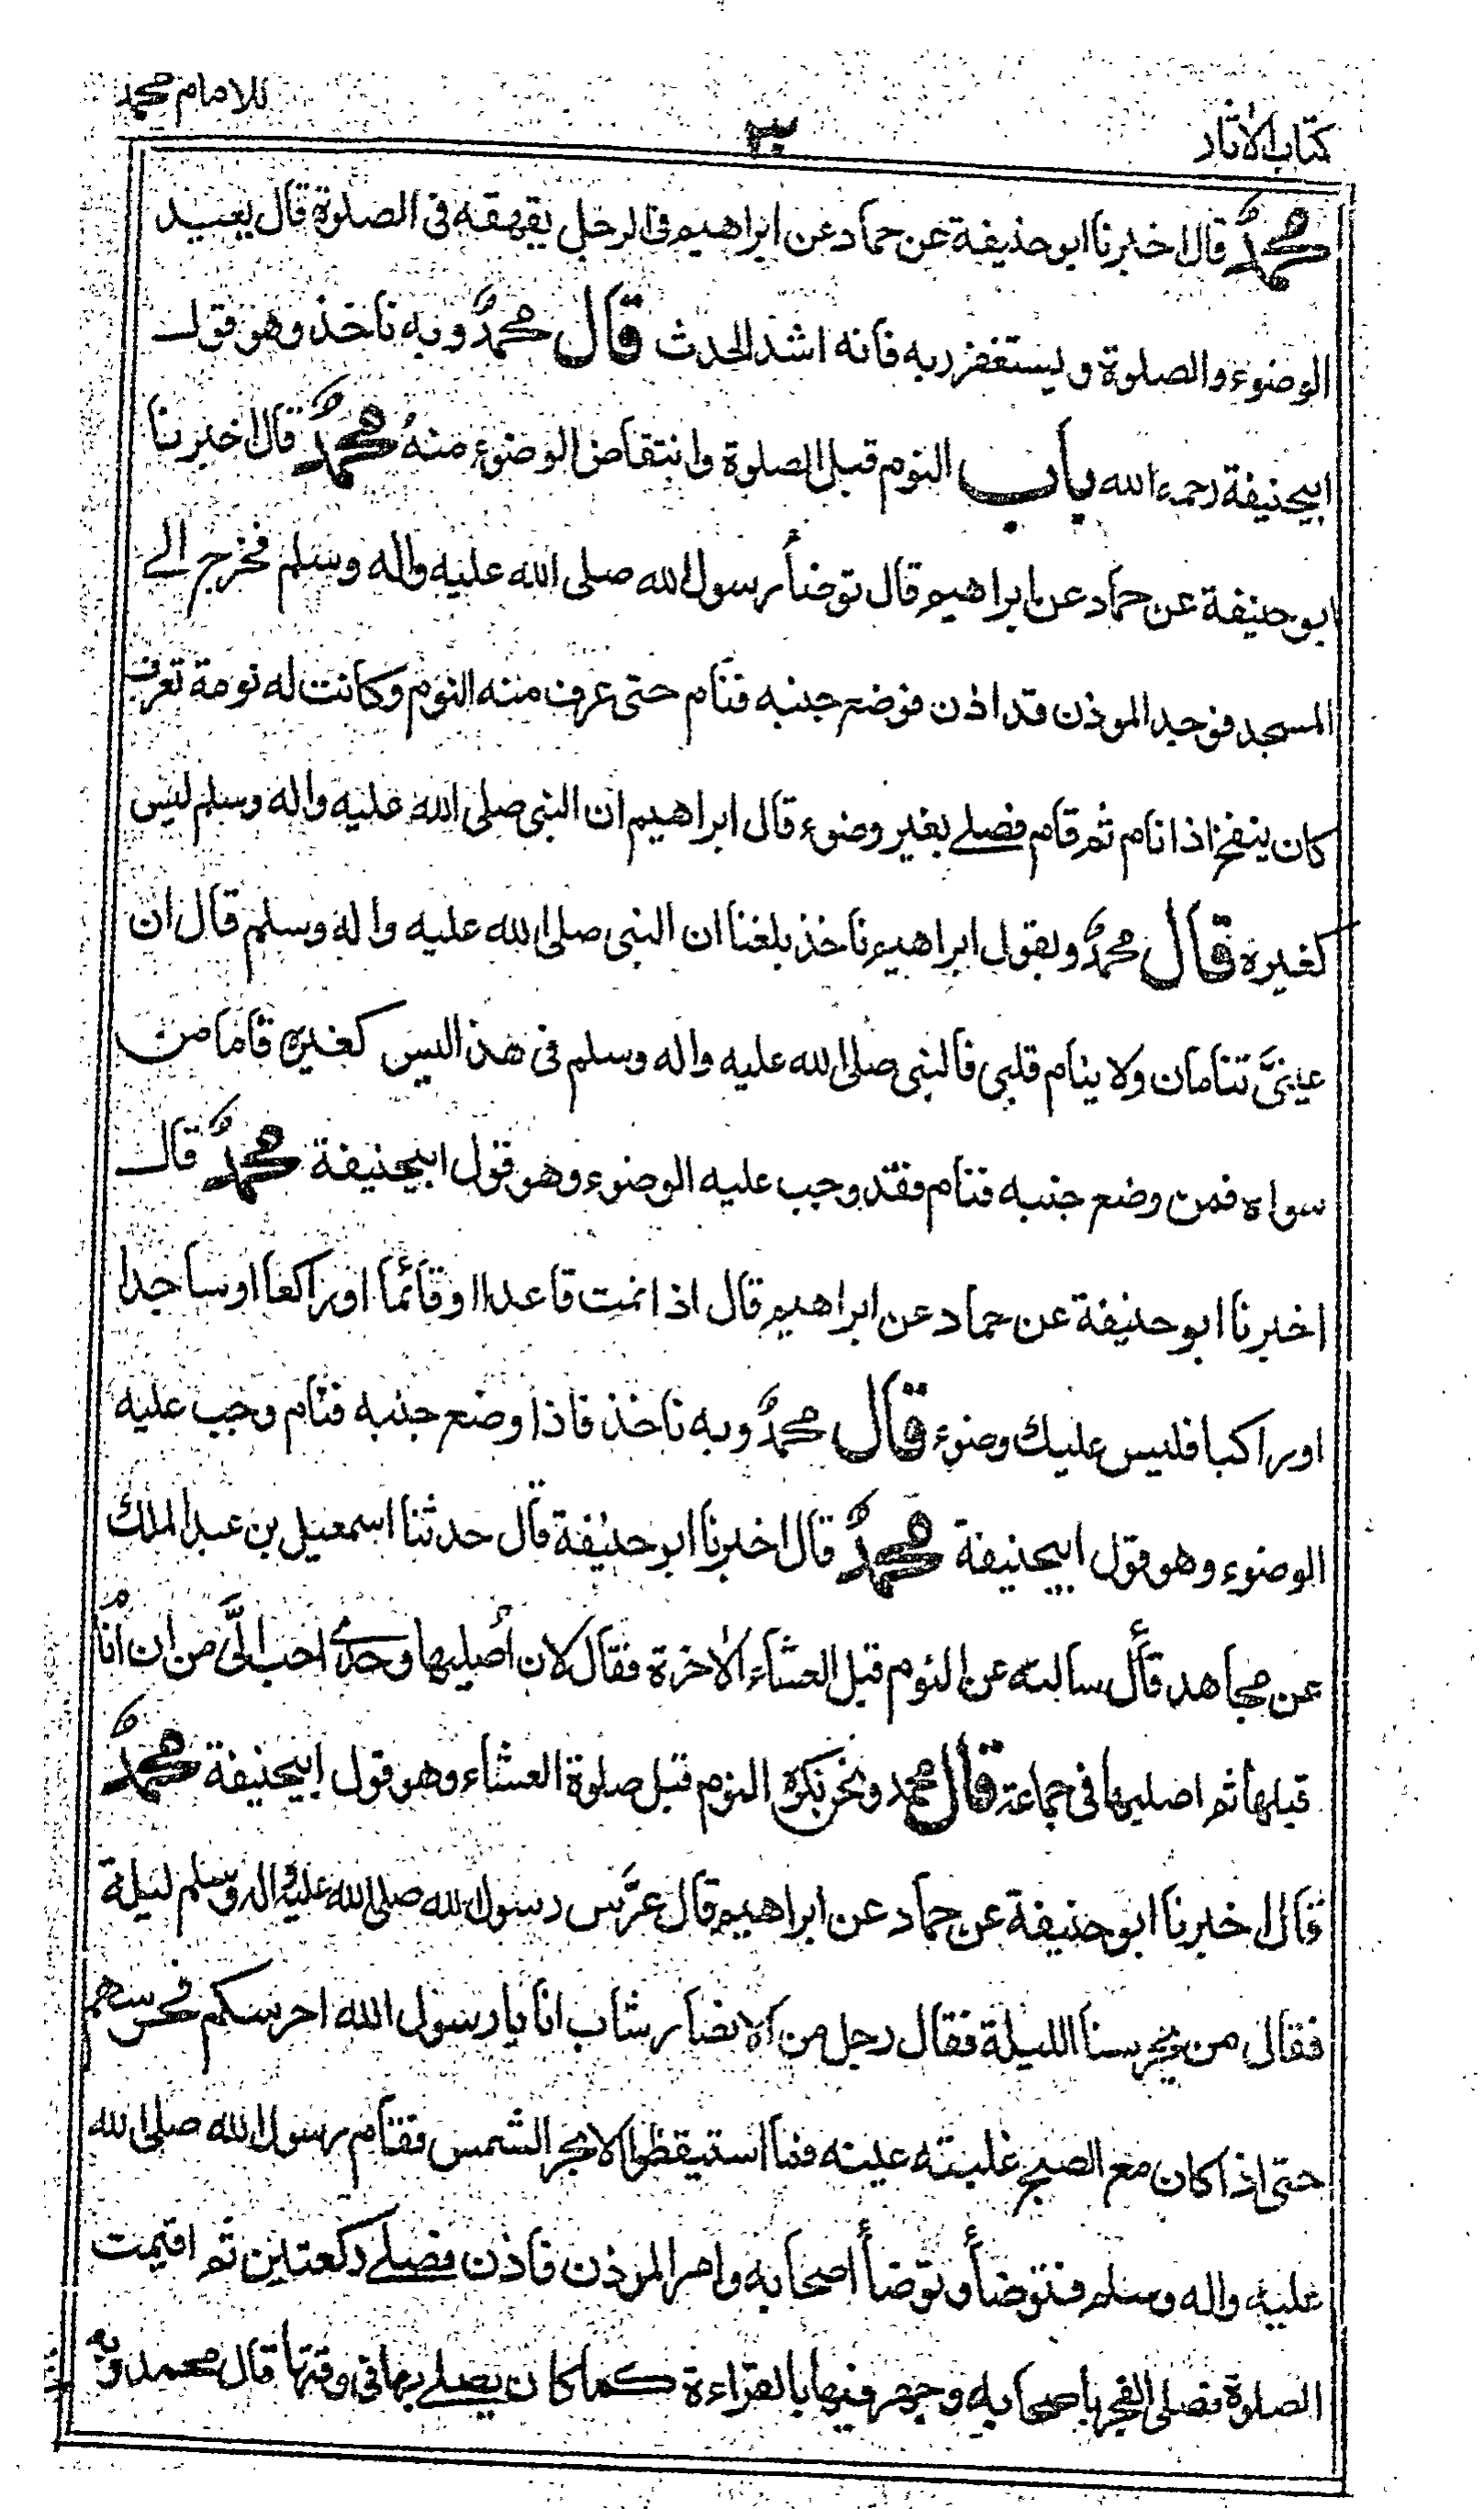 كتاب الآثار ٣٠ للامام محمد
محمدٌ قال اخبرنا ابو حنيفة عن حماد عن ابراهيم فى الرجل يقهقه فى الصلوة قال يعيد
الوضوء والصلوة ويستغفر ربه فانه اشد الحدث قال محمدٌ وبه ناخذ وهو قول
ابيحنيفة رحمه الله باب النوم قبل الصلوة وانتقاض الوضوء منهُ محمدٌ قال اخبرنا
ابو حنيفة عن حماد عن ابراهيم قال توضأ رسول الله صلى الله عليه واله وسلم فخرج الے
المسجد فوجد الموذن قد اذن فوضع جنبه فنام حتى عرف منه النوم وكانت له نومة تعرف
كان ينفخ اذا نام ثم قام فصلے بغير وضوء قال ابراهيم ان النبى صلى الله عليه واله وسلم ليس
كغيره قال محمدٌ وبقول ابراهيم ناخذ بلغنا ان النبى صلى الله عليه واله وسلم قال ان
عينىَّ تنامان ولا ينام قلبى فالنبى صلى الله عليه واله وسلم فى هذا ليس كغيره فاما من
سواه فمن وضع جنبه فنام فقد وجب عليه الوضوء وهو قول ابيحنيفة محمدٌ قال
اخبرنا ابو حنيفة عن حماد عن ابراهيم قال اذا نمت قاعدا او قائما او راكعا او ساجدا
او راكبا فليس عليك وضوء قال محمدٌ وبه ناخذ فاذا وضع جنبه فنام وجب عليه
الوضوء وهو قول ابيحنيفة محمدٌ قال اخبرنا ابو حنيفة قال حدثنا اسمعيل بن عبد الملك
عن مجاهد قال سالته عن النوم قبل العشاء الآخرة فقال لان اُصليها وحدى احب الىَّ من ان انام
قبلها ثم اصليها فى جماعة قال محمد ونحن نكره النوم قبل صلوة العشاء وهو قول ابيحنيفة محمدٌ
قال اخبرنا ابو حنيفة عن حماد عن ابراهيم قال عرَّس رسول الله صلى الله عليه واله وسلم ليلة
فقال من يحرسنا الليلة فقال رجل من الانصار شاب انا يا رسول الله احرسكم فحرسهم
حتى اذا كان مع الصبح غلبته عينه فما استيقظوا الا بحر الشمس فقام رسول الله صلى الله
عليه واله وسلم فتوضأ وتوضأ اصحابه وامر الموذن فاذن فصلے ركعتين ثم اقيمت
الصلوة فصلى الفجر باصحابه وجهر فيها بالقراءة كما كان يصلے بها فى وقتها قال محمد وبه